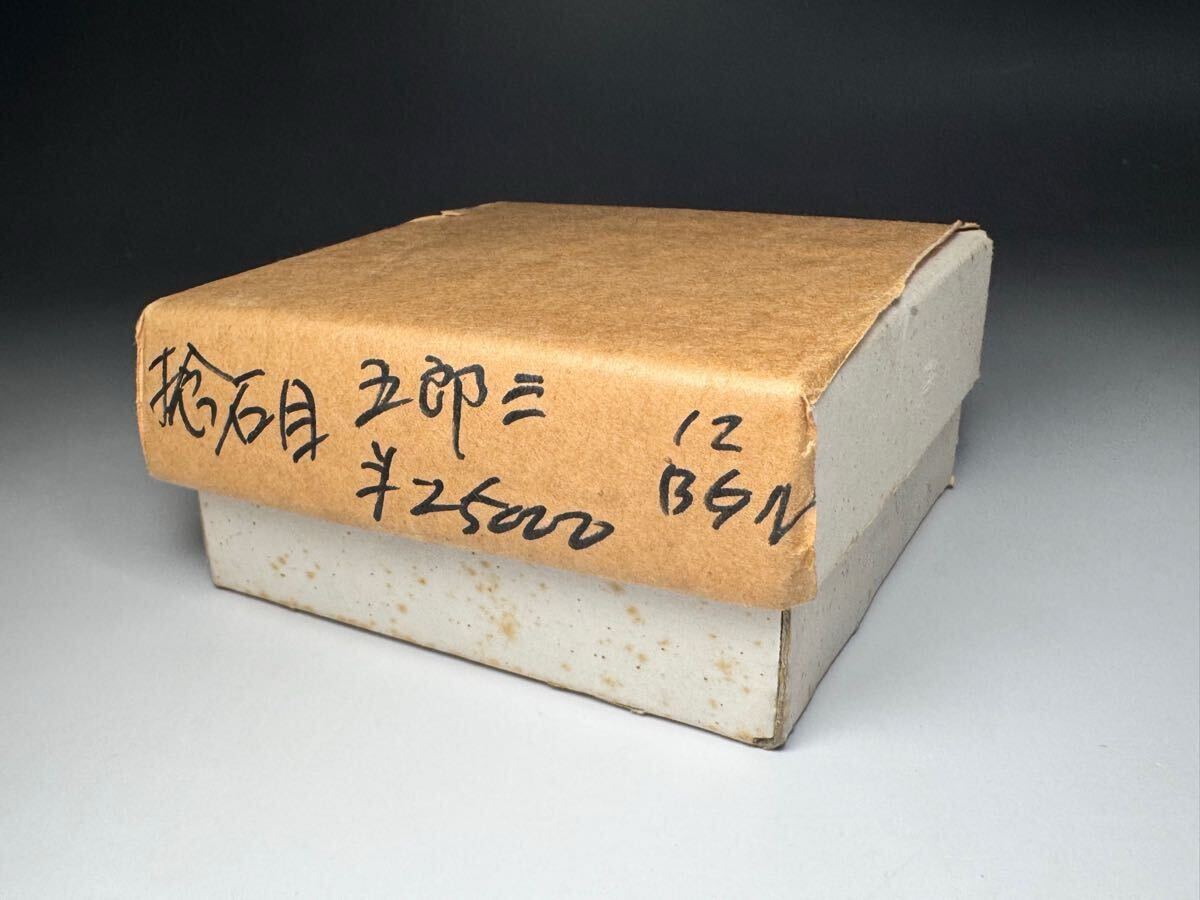 捻石目 五郎三 12
¥25000 BGN